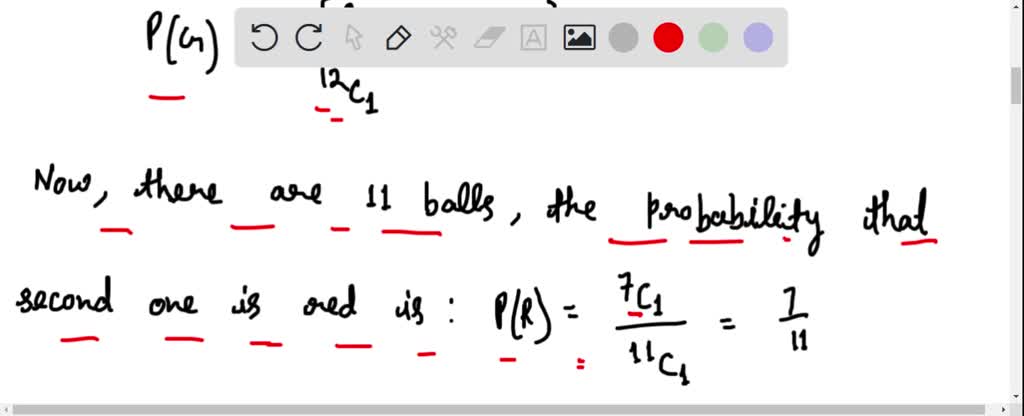 P(G)
¹²C₁
Now, there are 11 balls, the probability that
second one is red is : P(R) = ⁷C₁ / ¹¹C₁ = 7 / 11